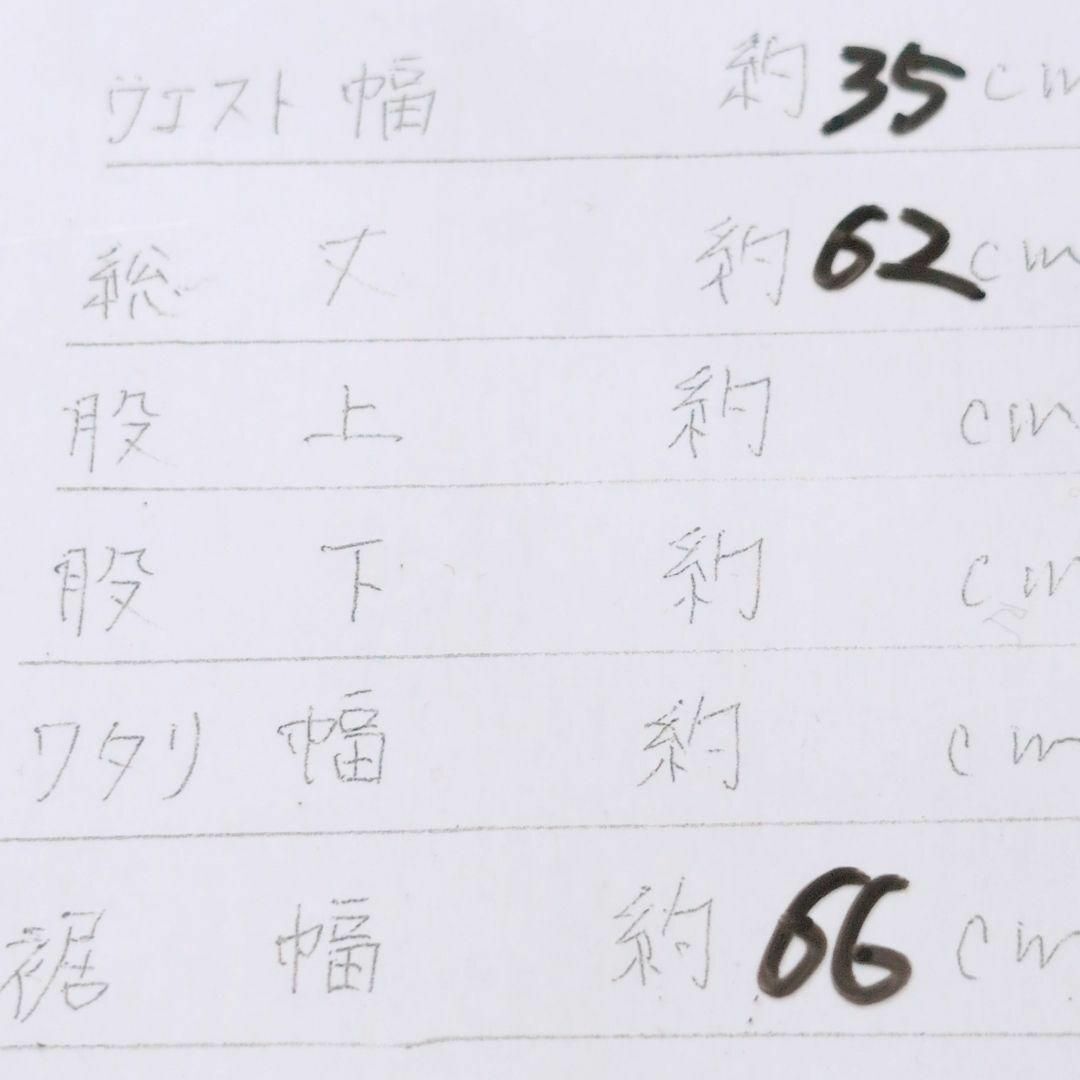 ウエスト幅 約35cm
総丈 約62cm
股上 約 cm
股下 約 cm
ワタリ幅 約 cm
裾幅 約66cm